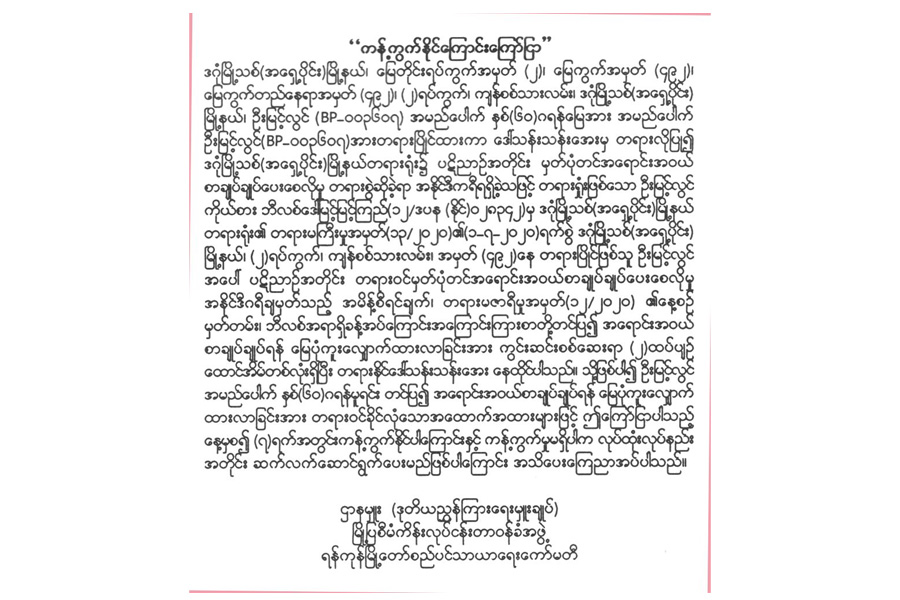 “ကန့်ကွက်နိုင်ကြောင်းကြော်ငြာ”
ဒဂုံမြို့သစ်(အရှေ့ပိုင်း)မြို့နယ်၊ မြေတိုင်းရပ်ကွက်အမှတ် (၂)၊ မြေကွက်အမှတ် (၄၉၂)၊
မြေကွက်တည်နေရာအမှတ် (၄၉၂)၊ (၂)ရပ်ကွက်၊ ကျန်စစ်သားလမ်း၊ ဒဂုံမြို့သစ်(အရှေ့ပိုင်း)
မြို့နယ်၊ ဦးမြင့်လွင် (BP-၀၀၃၆၀၇) အမည်ပေါက် နှစ်(၆၀)ဂရန်မြေအား အမည်ပေါက်
ဦးမြင့်လွင်(BP-၀၀၃၆၀၇)အားတရားပြိုင်ထားကာ ဒေါ်သန်းသန်းအေးမှ တရားလိုပြု၍
ဒဂုံမြို့သစ်(အရှေ့ပိုင်း)မြို့နယ်တရားရုံး၌ ပဋိညာဉ်အတိုင်း မှတ်ပုံတင်အရောင်းအဝယ်
စာချုပ်ချုပ်ပေးစေလိုမှု တရားစွဲဆိုခဲ့ရာ အနိုင်ဒီကရီရရှိခဲ့သဖြင့် တရားရှုံးဖြစ်သော ဦးမြင့်လွင်
ကိုယ်စား ဘီလစ်ဒေါ်မြင့်မြင့်ကြည်(၁၂/ဒပန (နိုင်)၀၂၈၃၄၂)မှ ဒဂုံမြို့သစ်(အရှေ့ပိုင်း)မြို့နယ်
တရားရုံး၏ တရားမကြီးမှုအမှတ်(၁၃/၂၀၂၀)၏(၁-၇-၂၀၂၀)ရက်စွဲ ဒဂုံမြို့သစ်(အရှေ့ပိုင်း)
မြို့နယ်၊ (၂)ရပ်ကွက်၊ ကျန်စစ်သားလမ်း၊ အမှတ် (၄၉၂)နေ တရားပြိုင်ဖြစ်သူ ဦးမြင့်လွင်
အပေါ် ပဋိညာဉ်အတိုင်း တရားဝင်မှတ်ပုံတင်အရောင်းအဝယ်စာချုပ်ချုပ်ပေးစေလိုမှု
အနိုင်ဒီဂရီချမှတ်သည့် အမိန့်စီရင်ချက်၊ တရားမဇာရီမှုအမှတ်(၁၂/၂၀၂၀) ၏နေ့စဉ်
မှတ်တမ်း၊ ဘီလစ်အရာရှိခန့်အပ်ကြောင်းအကြောင်းကြားစာတို့တင်ပြ၍ အရောင်းအဝယ်
စာချုပ်ချုပ်ရန် မြေပုံကူးလျှောက်ထားလာခြင်းအား ကွင်းဆင်းစစ်ဆေးရာ (၂)ထပ်ပျဉ်
ထောင်အိမ်တစ်လုံးရှိပြီး တရားနိုင်ဒေါ်သန်းသန်းအေး နေထိုင်ပါသည်။ သို့ဖြစ်ပါ၍ ဦးမြင့်လွင်
အမည်ပေါက် နှစ်(၆၀)ဂရန်မူရင်း တင်ပြ၍ အရောင်းအဝယ်စာချုပ်ချုပ်ရန် မြေပုံကူးလျှောက်
ထားလာခြင်းအား တရားဝင်ခိုင်လုံသောအထောက်အထားများဖြင့် ဤကြော်ငြာပါသည့်
နေ့မှစ၍ (၇)ရက်အတွင်းကန့်ကွက်နိုင်ပါကြောင်းနှင့် ကန့်ကွက်မှုမရှိပါက လုပ်ထုံးလုပ်နည်း
အတိုင်း ဆက်လက်ဆောင်ရွက်ပေးမည်ဖြစ်ပါကြောင်း အသိပေးကြေညာအပ်ပါသည်။
ဌာနမှူး (ဒုတိယညွှန်ကြားရေးမှူးချုပ်)
မြို့ပြစီမံကိန်းလုပ်ငန်းတာဝန်ခံအဖွဲ့
ရန်ကုန်မြို့တော်စည်ပင်သာယာရေးကော်မတီ